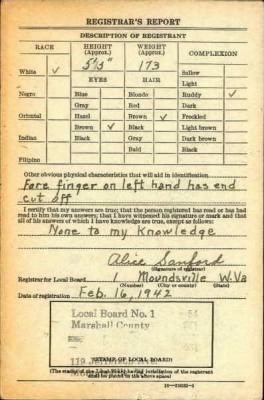 REGISTRAR'S REPORT
DESCRIPTION OF REGISTRANT
RACE HEIGHT (Approx.) WEIGHT (Approx.) COMPLEXION
White ✓ 173 Sallow
EYES HAIR Light
Negro Blue Blonde Ruddy ✓
Gray Red Dark
Oriental Hazel Brown ✓ Freckled
Brown ✓ Black Light brown
Indian Black Gray Dark brown
Bald Black
Filipino
Other obvious physical characteristics that will aid in identification
Fore finger on left hand has end
cut off
I certify that my answers are true; that the person registered has read or has had
read to him his own answers; that I have witnessed his signature or mark and that
all of his answers of which I have knowledge are true, except as follows:
None to my knowledge
Alice Sanford
(Signature of registrar)
Registrar for Local Board 1 Moundsville W.Va
(Number) (City or county) (State)
Date of registration Feb. 16, 1942
Local Board No. 1
Marshall County
(STAMP OF LOCAL BOARD)
(The stamp of the Local Board having jurisdiction of the registrant
shall be placed in the above space)